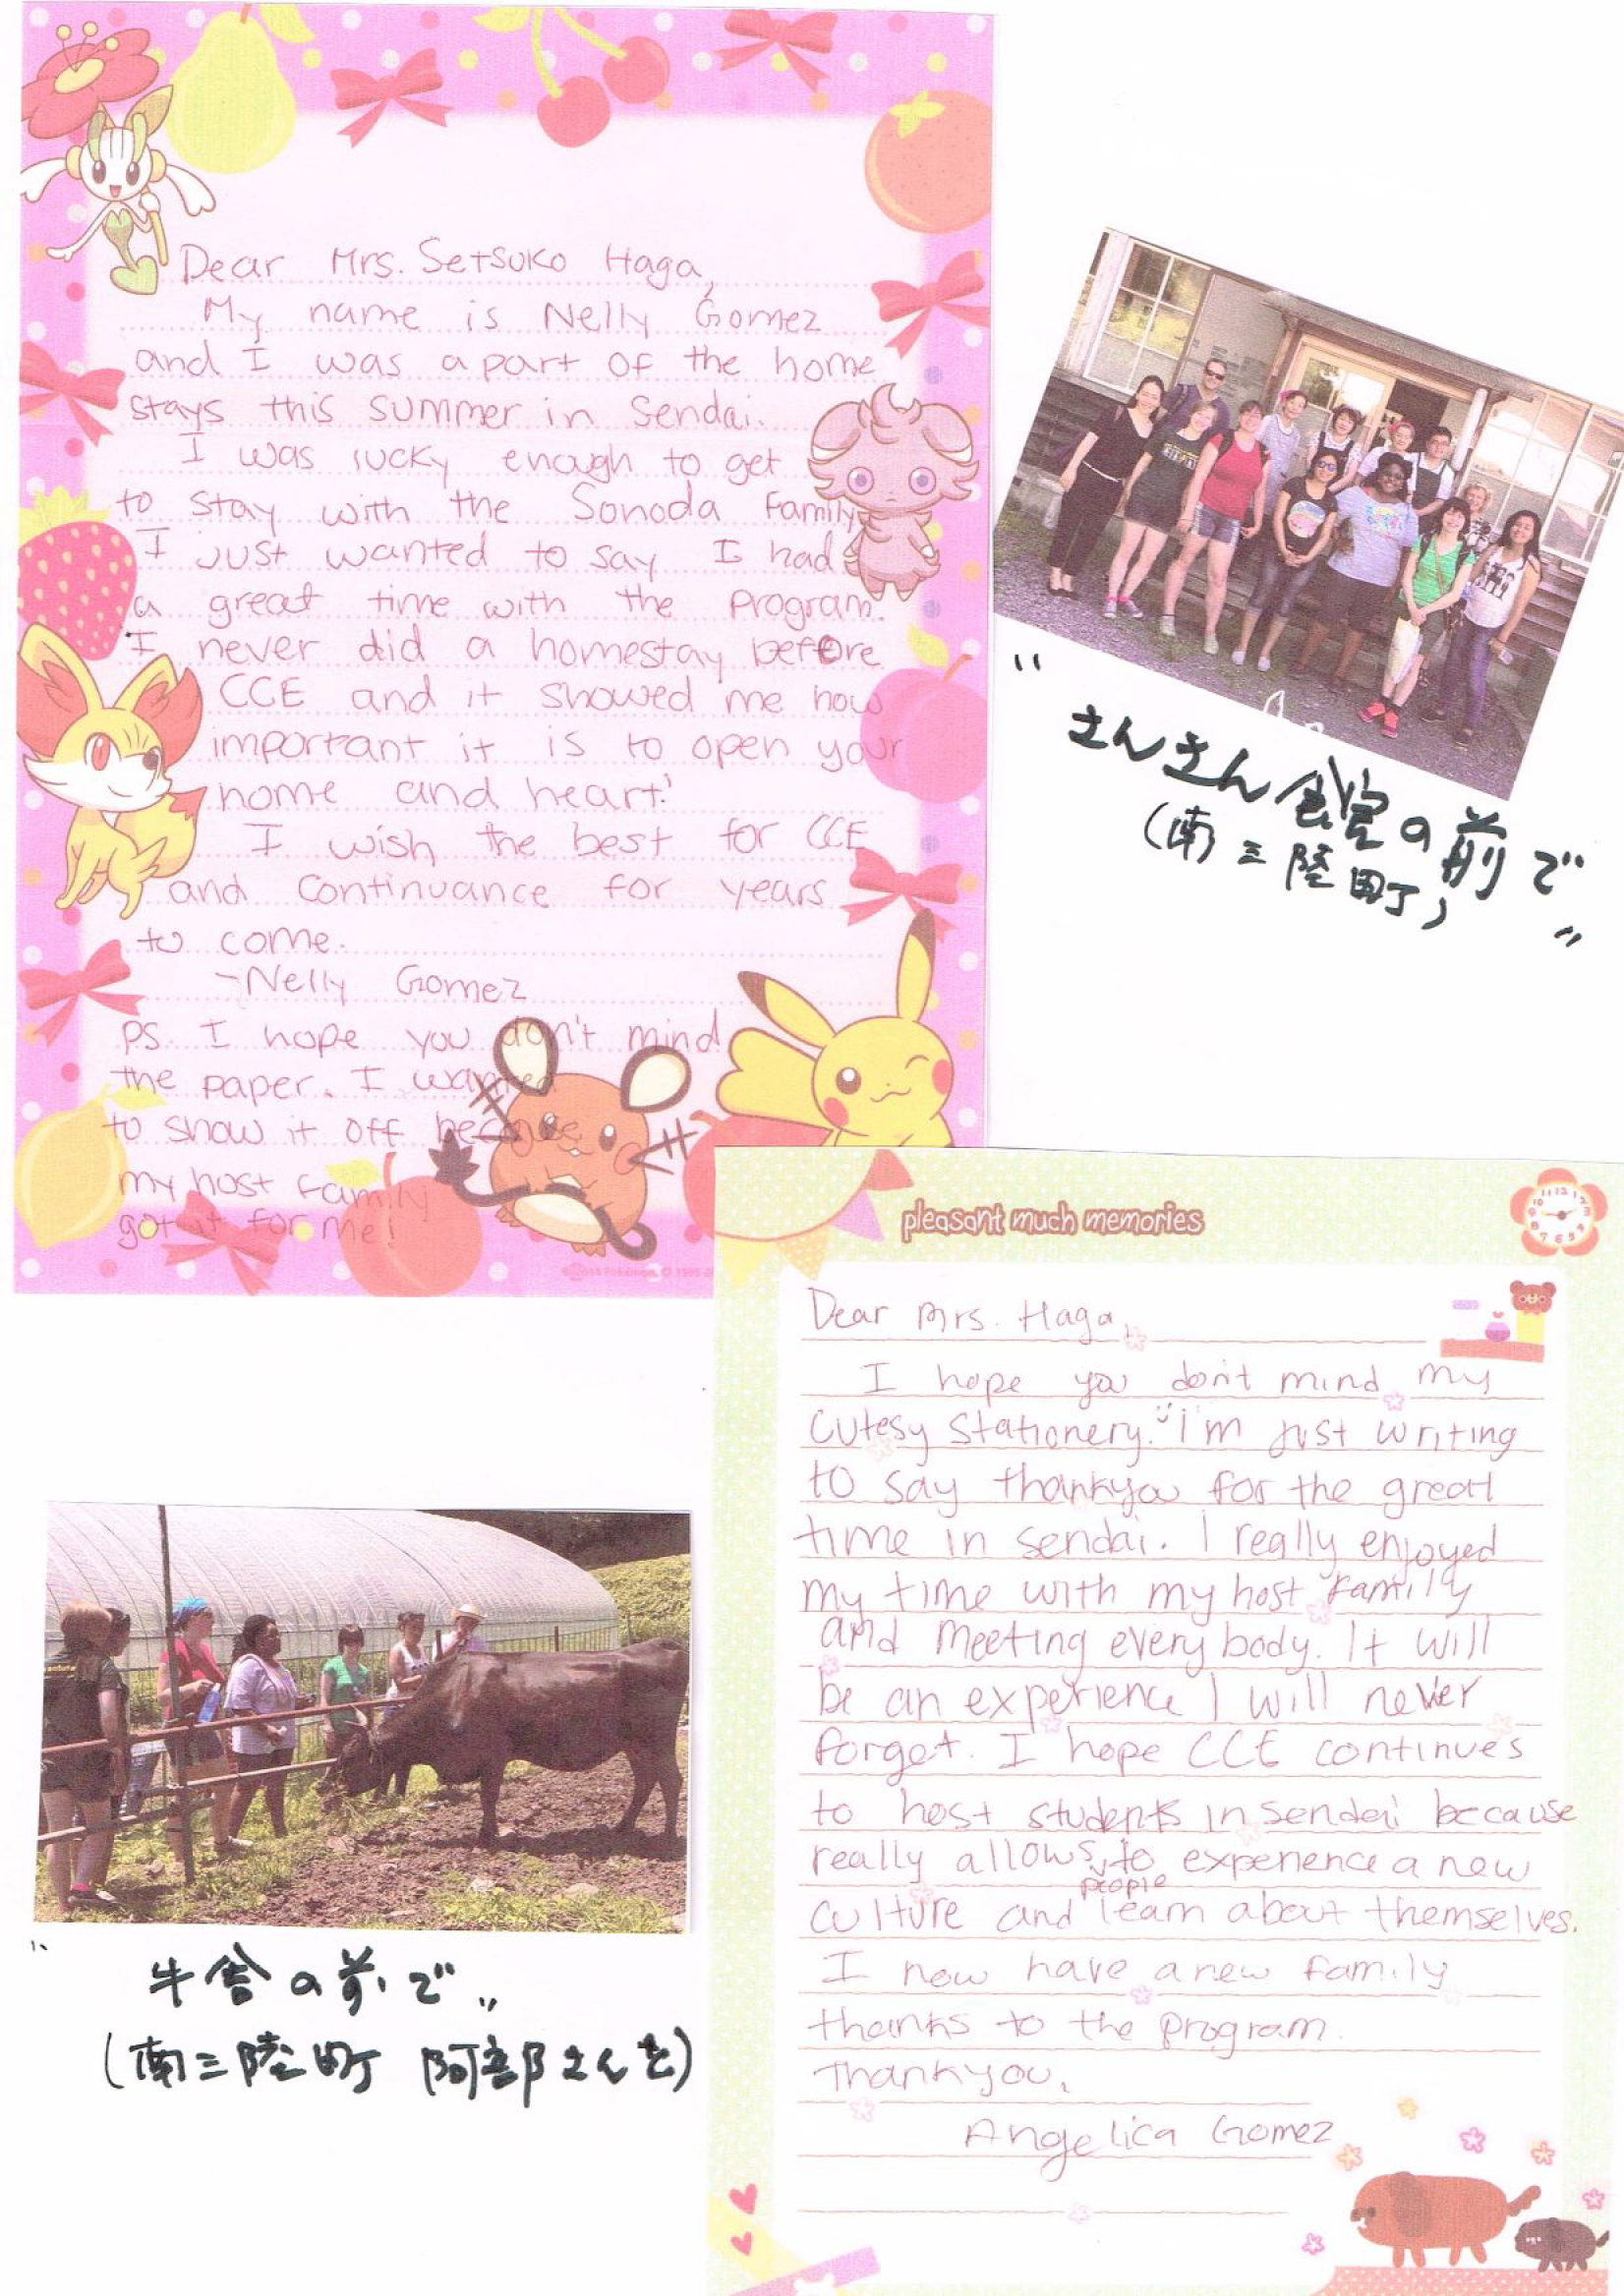 Dear Mrs. Setsuko Haga,
My name is Nelly Gomez
and I was a part of the home
stays this summer in Sendai.
I was lucky enough to get
to stay with the Sonoda Family
I just wanted to say I had
a great time with the program.
I never did a homestay before
CCE and it showed me how
important it is to open your
home and heart!
I wish the best for CCE
and continuance for years
to come.
-Nelly Gomez
ps. I hope you don't mind
the paper. I wanted
to show it off because
my host family
got it for me!
"さんさん食堂の前で"
(南三陸町)
pleasant much memories
Dear Mrs. Haga,
I hope you don't mind my
cutesy stationery. I'm just writing
to say thankyou for the great
time in sendai. I really enjoyed
my time with my host family
and meeting everybody. It will
be an experience I will never
forget. I hope CCE continues
to host students in sendai because
really allows people to experience a new
culture and learn about themselves.
I now have a new family
thanks to the program.
Thankyou,
Angelica Gomez
"牛舎の前で"
(南三陸町 阿部さん宅)